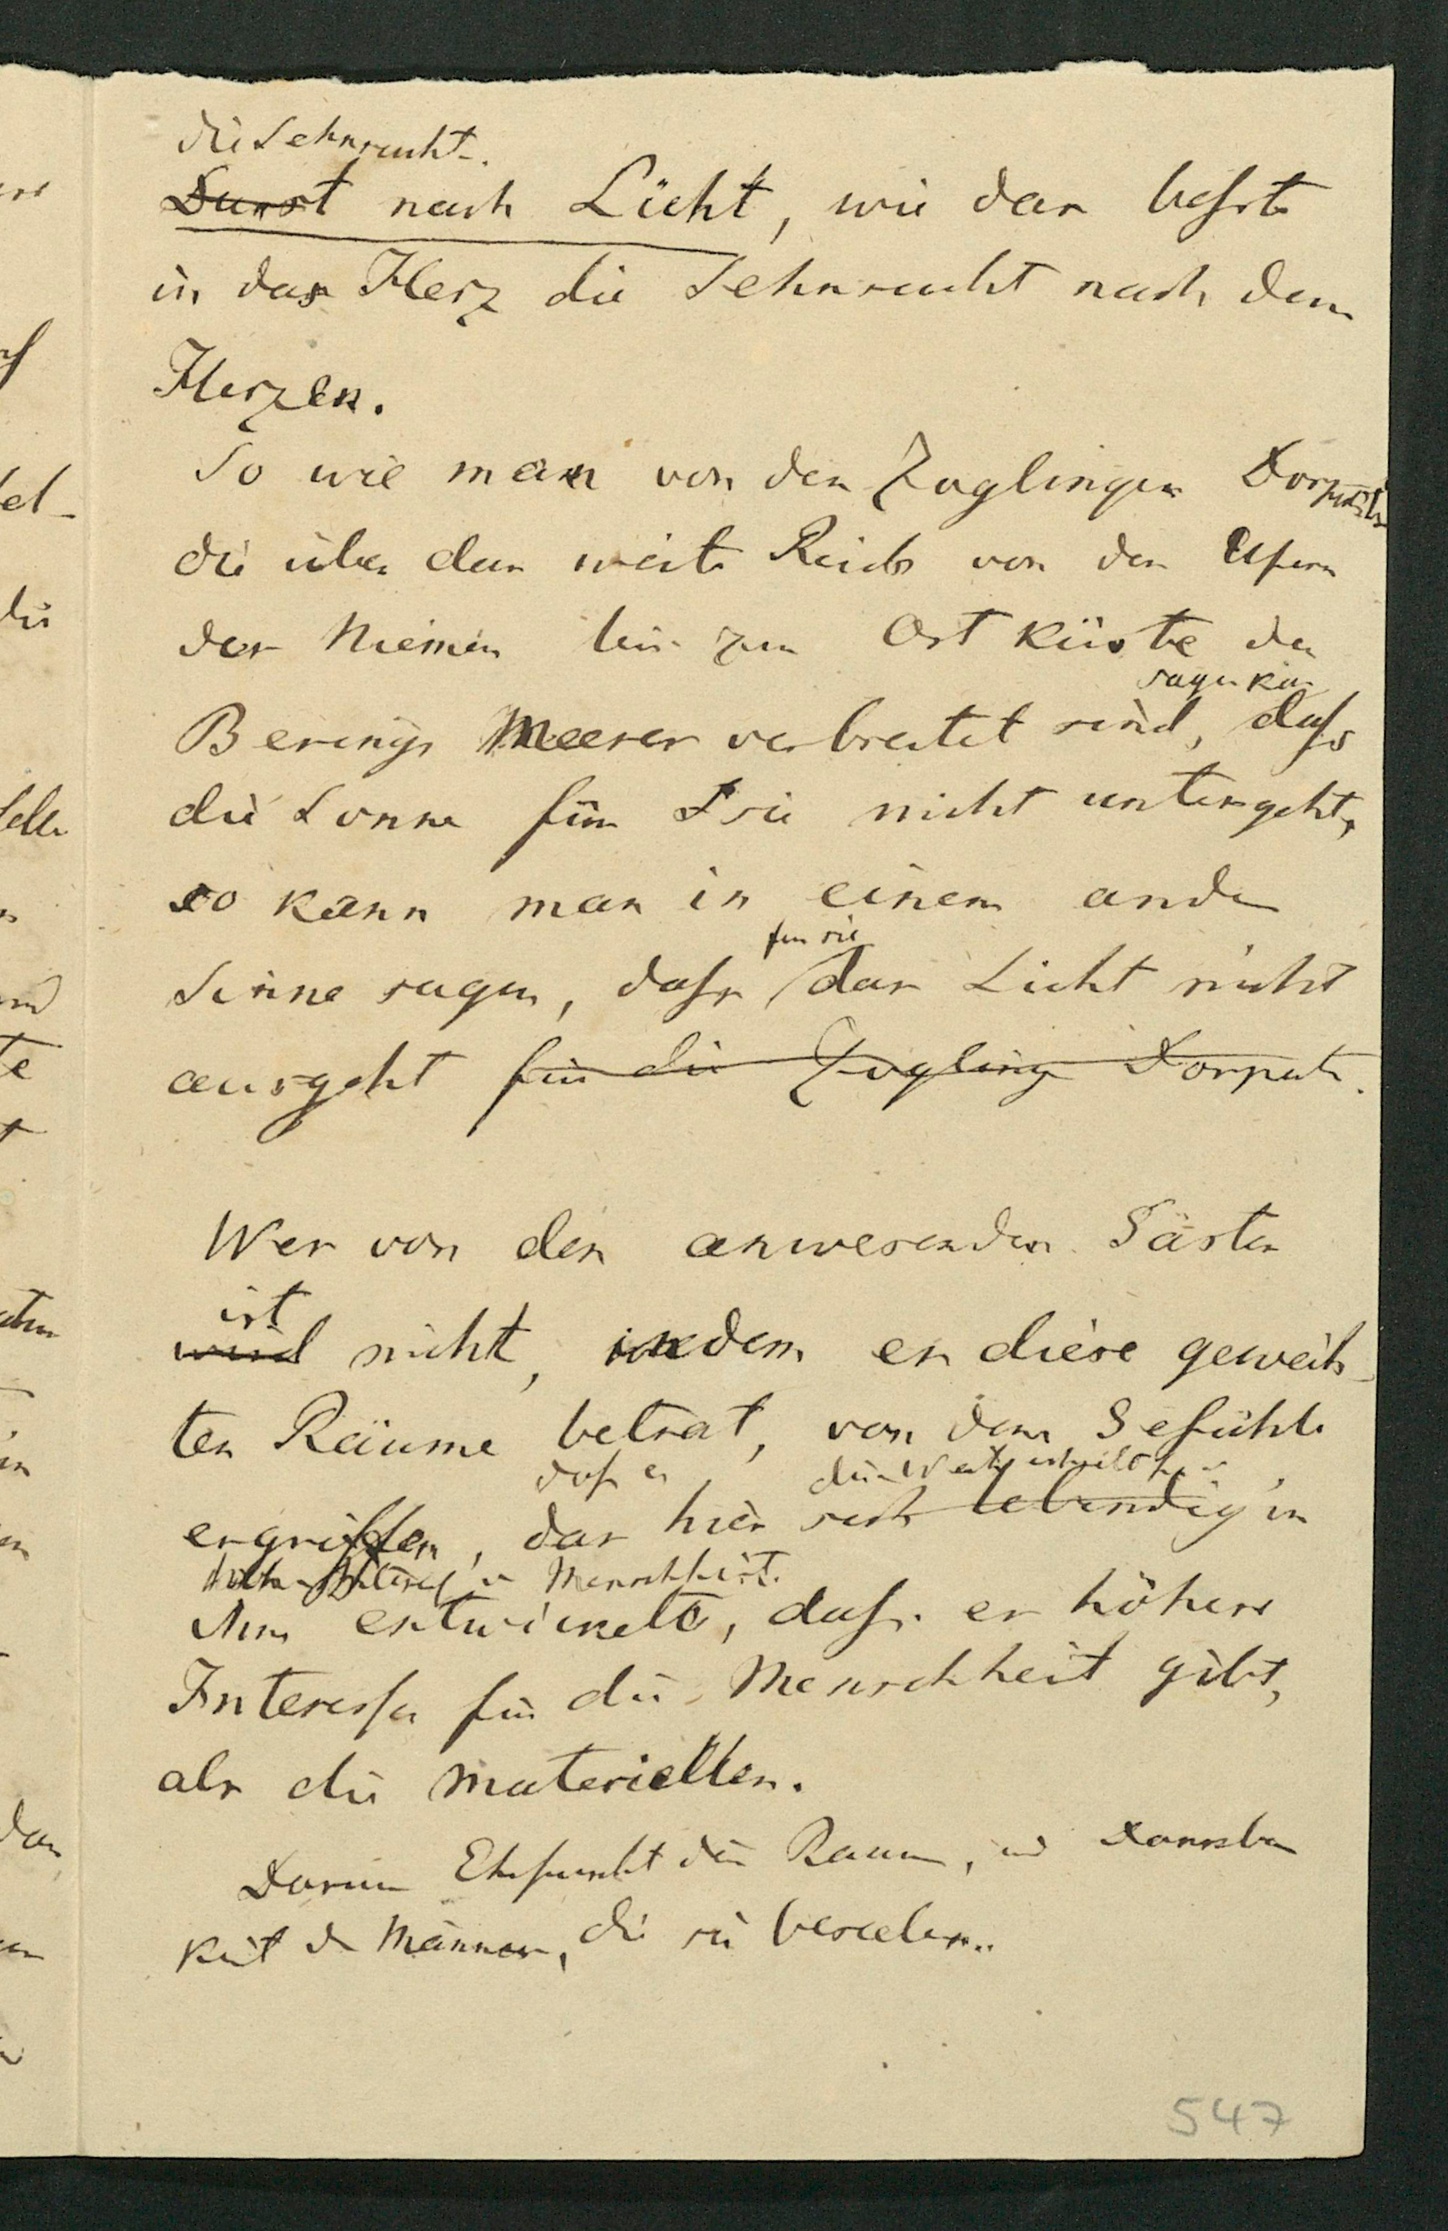 die Sehnsucht
Durst nach Licht, wie das beste
in das Herz die Sehnsucht nach dem
Herzen.
So wie man von den Zöglingen Dorpats
die über das weite Reich von den Ufern
des Niemen bis zur Ostküste des
sagen kan
Berings Meeres verbreitet sind, dass
die Sonne für sie nicht untergeht,
so kann man in einem andern
für sie
Sinne sagen, dass das Licht nicht
ausgeht für die Zöglinge Dorpats.
Wer von den anwesenden Gästen
ist
wird nicht, indem er diese geweih-
ten Räume betrat, von dem Gefühle
dass er
ergriffen, das hier sich lebendig in
Menschheit
ihm entwickelte, dass es höhere
Interessen für die Menschheit gibt,
als die materiellen.
Darum Ehrfurcht den Raum, und Dankbar
keit den Männer, die sie beseelen.
547